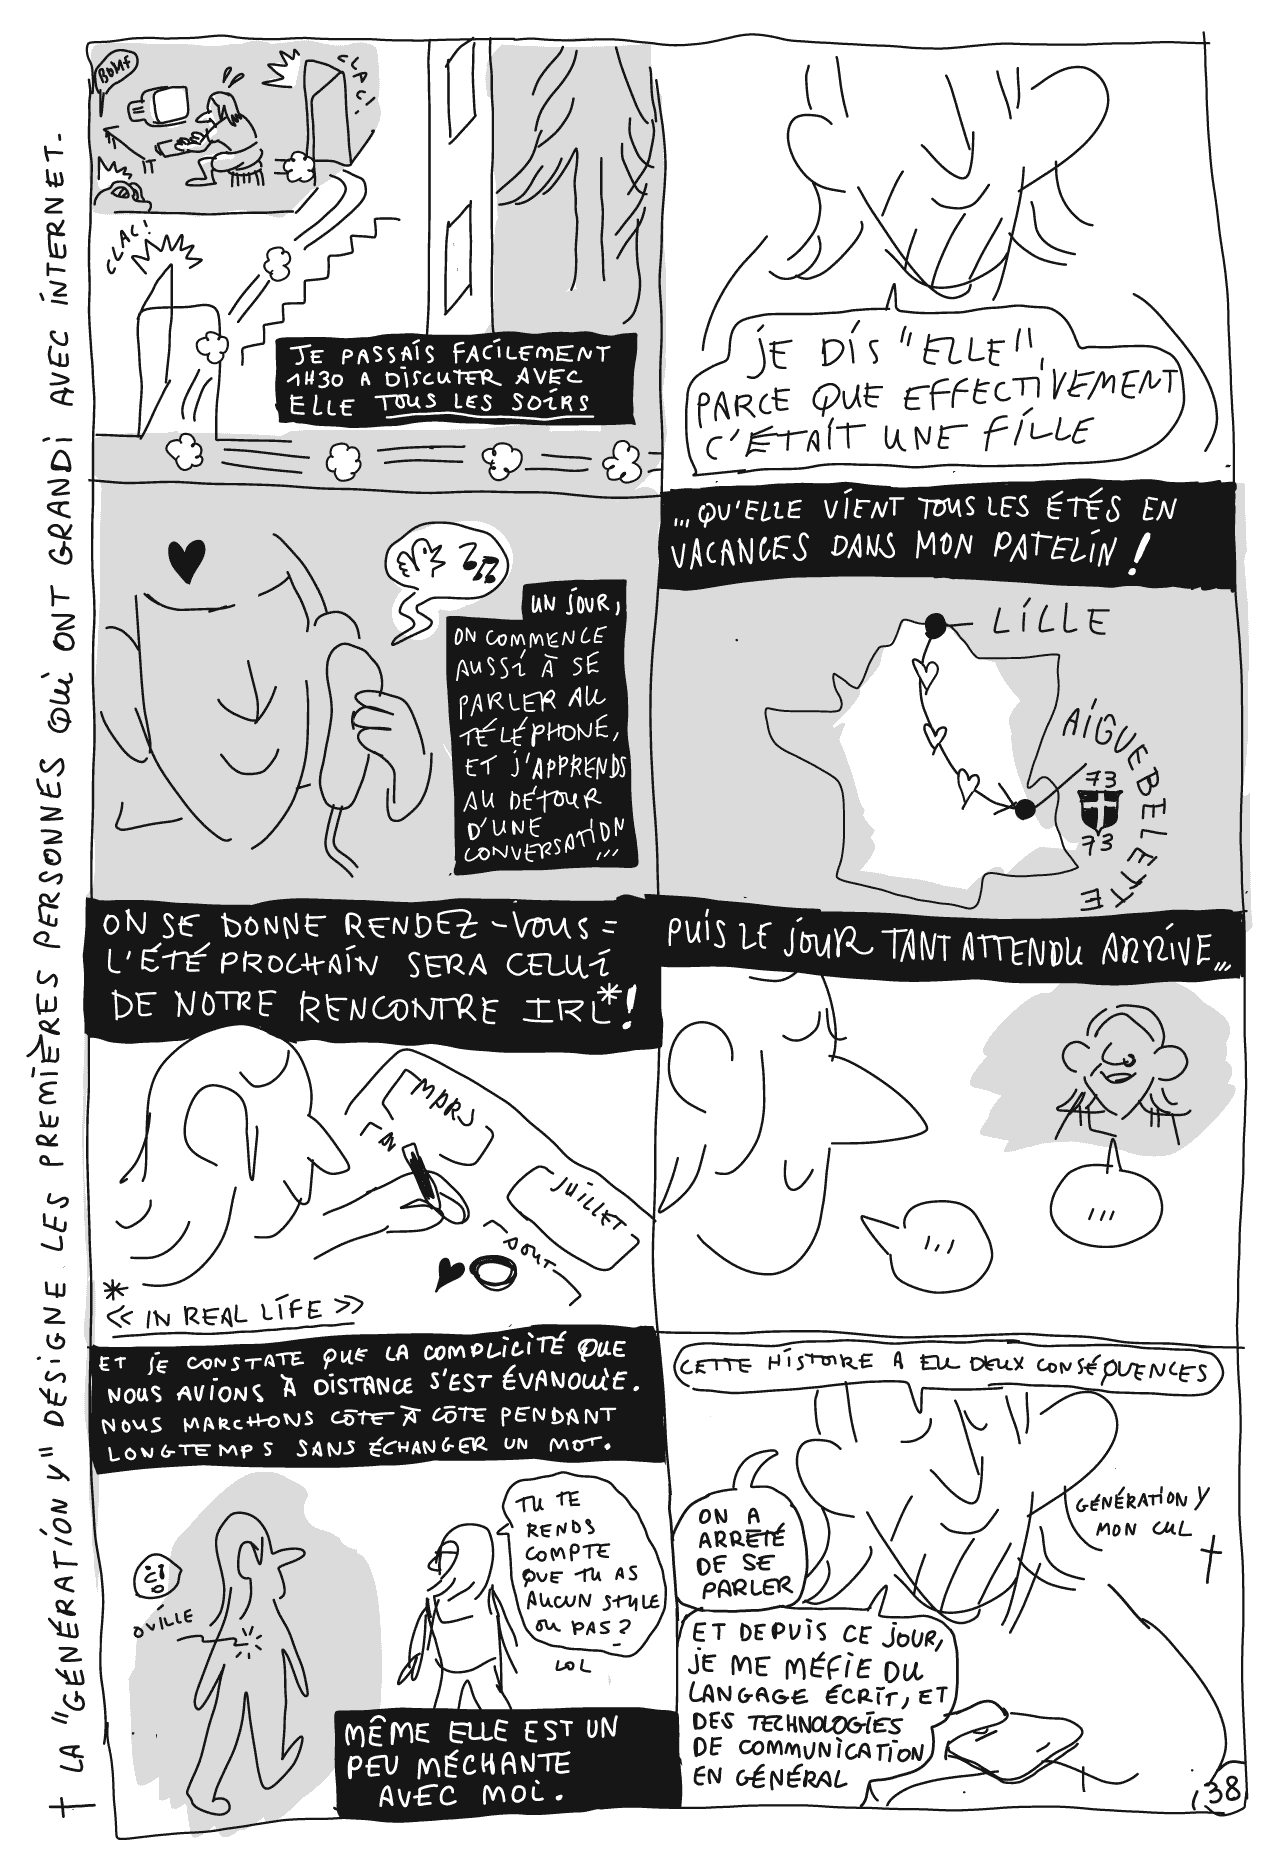 BONF
CLAC!
CLAC!
JE PASSAIS FACILEMENT
1H30 A DISCUTER AVEC
ELLE TOUS LES SOIRS
JE DIS "ELLE",
PARCE QUE EFFECTIVEMENT
C'ÉTAIT UNE FILLE
UN JOUR,
ON COMMENCE
AUSSI À SE
PARLER AU
TÉLÉPHONE,
ET J'APPRENDS
AU DÉTOUR
D'UNE
CONVERSATION...
...QU'ELLE VIENT TOUS LES ÉTÉS EN
VACANCES DANS MON PATELIN !
LILLE
AIGUEBELETTE
73
73
ON SE DONNE RENDEZ-VOUS =
L'ÉTÉ PROCHAIN SERA CELUI
DE NOTRE RENCONTRE IRL* !
MARS
JUILLET
AOUT
*
« IN REAL LIFE »
PUIS LE JOUR TANT ATTENDU ARRIVE...
...
...
ET JE CONSTATE QUE LA COMPLICITÉ QUE
NOUS AVIONS À DISTANCE S'EST ÉVANOUIE.
NOUS MARCHONS CÔTE À CÔTE PENDANT
LONGTEMPS SANS ÉCHANGER UN MOT.
OVILLE
TU TE
RENDS
COMPTE
QUE TU AS
AUCUN STYLE
OU PAS ?
LOL
MÊME ELLE EST UN
PEU MÉCHANTE
AVEC MOI.
CETTE HISTOIRE A EU DEUX CONSÉQUENCES
ON A
ARRÊTÉ
DE SE
PARLER
GÉNÉRATION Y
MON CUL
†
ET DEPUIS CE JOUR,
JE ME MÉFIE DU
LANGAGE ÉCRIT, ET
DES TECHNOLOGIES
DE COMMUNICATION
EN GÉNÉRAL
38
† LA "GÉNÉRATION Y" DÉSIGNE LES PREMIÈRES PERSONNES QUI ONT GRANDI AVEC INTERNET.